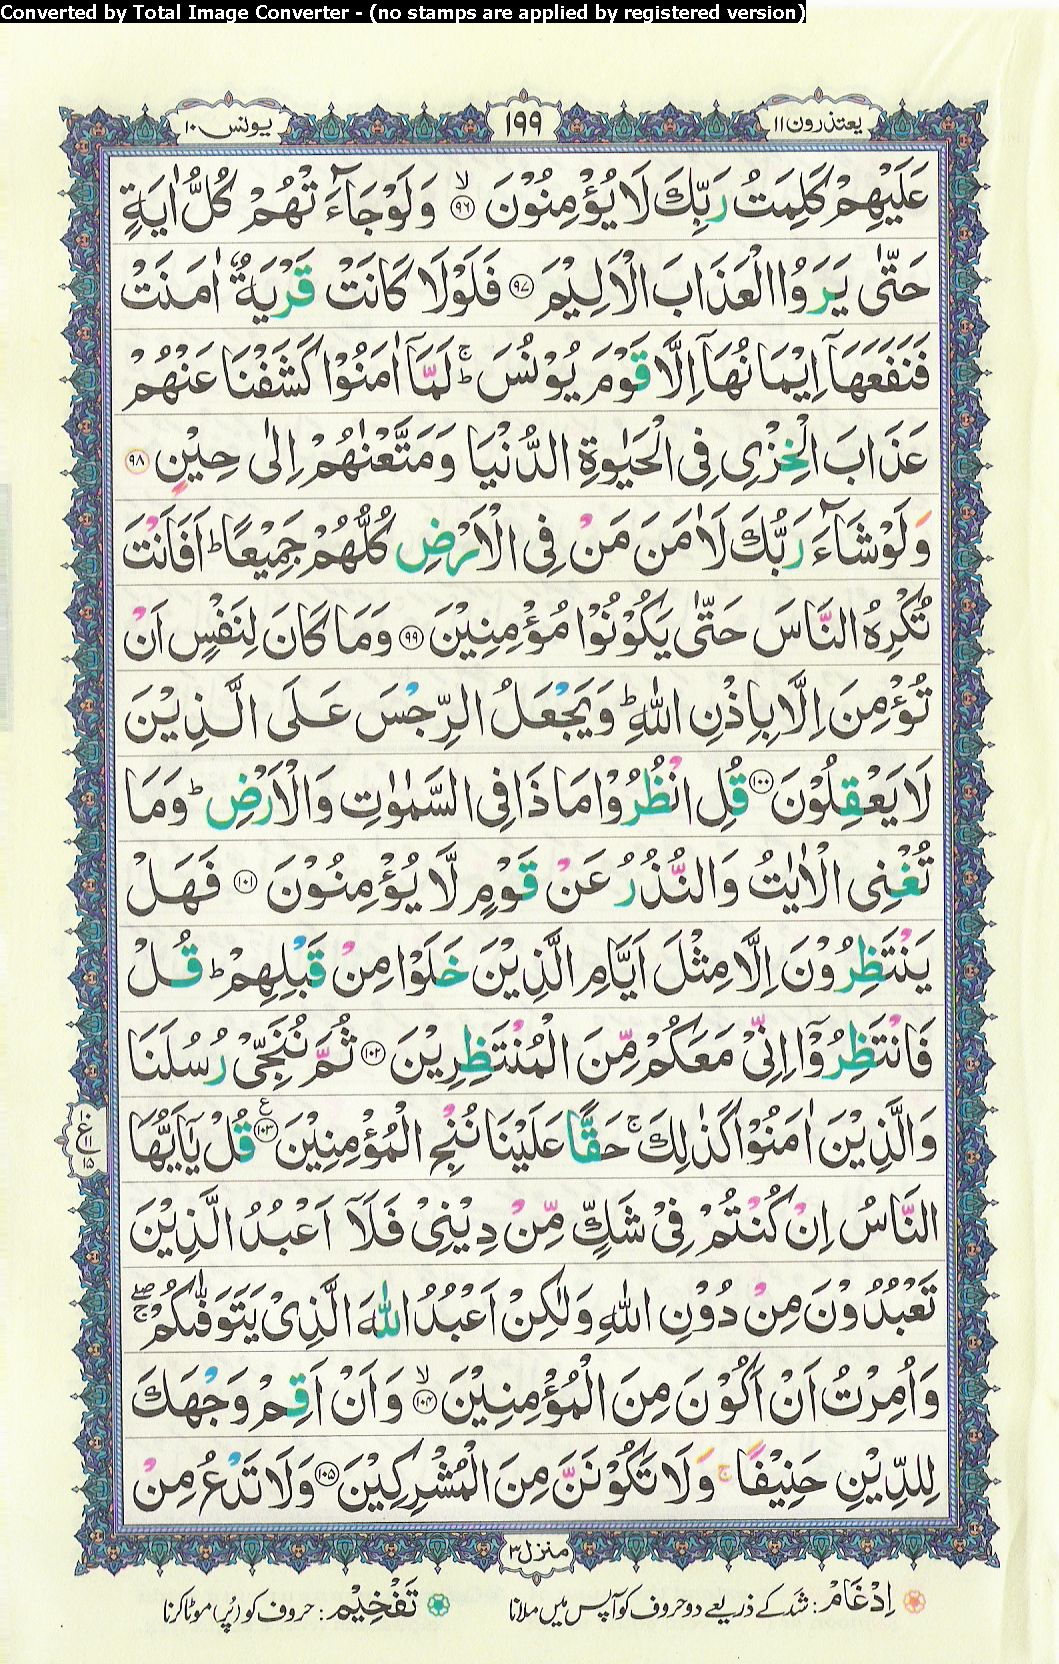 Converted by Total Image Converter - (no stamps are applied by registered version)
یعتذرون ۱۱
۱۹۹
یونس ۱۰
عَلَیْهِمْ كَلِمَتُ رَبِّكَ لَا یُؤْمِنُوْنَ ۙ۹۶ وَ لَوْ جَآءَتْهُمْ كُلُّ اٰیَةٍ
حَتّٰى یَرَوُا الْعَذَابَ الْاَلِیْمَ ۹۷ فَلَوْ لَا كَانَتْ قَرْیَةٌ اٰمَنَتْ
فَنَفَعَهَاۤ اِیْمَانُهَاۤ اِلَّا قَوْمَ یُوْنُسَ ؕۚ لَمَّاۤ اٰمَنُوْا كَشَفْنَا عَنْهُمْ
عَذَابَ الْخِزْیِ فِی الْحَیٰوةِ الدُّنْیَا وَ مَتَّعْنٰهُمْ اِلٰى حِیْنٍ ۹۸
وَ لَوْ شَآءَ رَبُّكَ لَاٰمَنَ مَنْ فِی الْاَرْضِ كُلُّهُمْ جَمِیْعًا ؕ اَفَاَنْتَ
تُكْرِهُ النَّاسَ حَتّٰى یَكُوْنُوْا مُؤْمِنِیْنَ ۹۹ وَ مَا كَانَ لِنَفْسٍ اَنْ
تُؤْمِنَ اِلَّا بِاِذْنِ اللّٰهِ ؕ وَ یَجْعَلُ الرِّجْسَ عَلَى الَّذِیْنَ
لَا یَعْقِلُوْنَ ۱۰۰ قُلِ انْظُرُوْا مَا ذَا فِی السَّمٰوٰتِ وَ الْاَرْضِ ؕ وَ مَا
تُغْنِی الْاٰیٰتُ وَ النُّذُرُ عَنْ قَوْمٍ لَّا یُؤْمِنُوْنَ ۱۰۱ فَهَلْ
یَنْتَظِرُوْنَ اِلَّا مِثْلَ اَیَّامِ الَّذِیْنَ خَلَوْا مِنْ قَبْلِهِمْ ؕ قُلْ
فَانْتَظِرُوْۤا اِنِّیْ مَعَكُمْ مِّنَ الْمُنْتَظِرِیْنَ ۱۰۲ ثُمَّ نُنَجِّیْ رُسُلَنَا
وَ الَّذِیْنَ اٰمَنُوْا كَذٰلِكَ ۚ حَقًّا عَلَیْنَا نُنْجِ الْمُؤْمِنِیْنَ ۱۰۳ع قُلْ یٰۤاَیُّهَا
۱۰
ع ۱۱
۱۵
النَّاسُ اِنْ كُنْتُمْ فِیْ شَكٍّ مِّنْ دِیْنِیْ فَلَاۤ اَعْبُدُ الَّذِیْنَ
تَعْبُدُوْنَ مِنْ دُوْنِ اللّٰهِ وَ لٰكِنْ اَعْبُدُ اللّٰهَ الَّذِیْ یَتَوَفّٰىكُمْ ۖۚ
وَ اُمِرْتُ اَنْ اَكُوْنَ مِنَ الْمُؤْمِنِیْنَ ۙ۱۰۴ وَ اَنْ اَقِمْ وَجْهَكَ
لِلدِّیْنِ حَنِیْفًا ۚ وَ لَا تَكُوْنَنَّ مِنَ الْمُشْرِكِیْنَ ۱۰۵ وَ لَا تَدْعُ مِنْ
منزل ۳
اِدْغَام: شَد کے ذریعے دو حروف کو آپس میں ملانا
تَفْخِیْم: حروف کو (پُر) موٹا کرنا